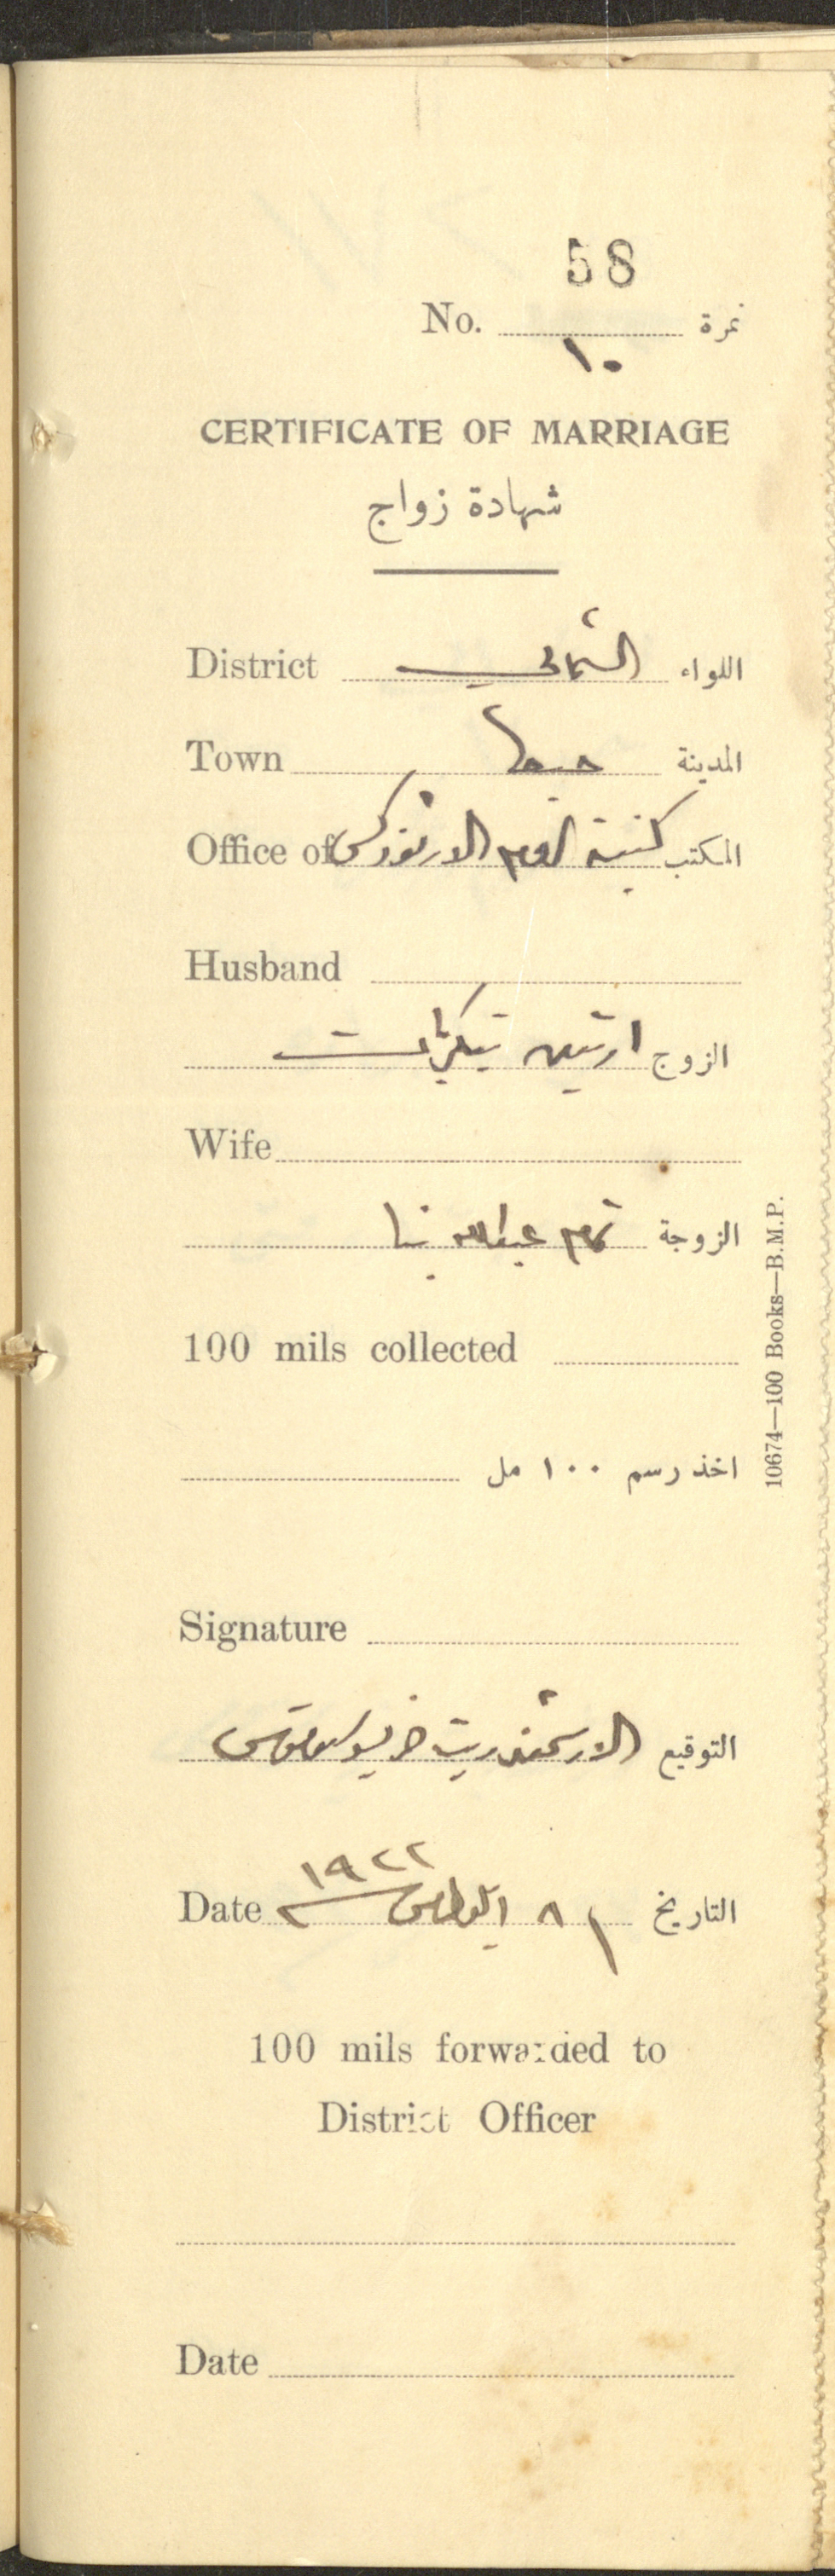 58
No. نمرة
١٠
CERTIFICATE OF MARRIAGE
شهادة زواج
District الشمالي اللواء
Town حيفا المدينة
Office of المكتب كنيسة الروم الارثوذكس
Husband
الزوج ارتين
Wife
الزوجة تمام عبدالله
100 mils collected
اخذ رسم ١٠٠ مل
Signature
التوقيع الارشمندريت
١٩٢٢
Date ٨ التاريخ
100 mils forwarded to
District Officer
Date
10674—100 Books—B.M.P.